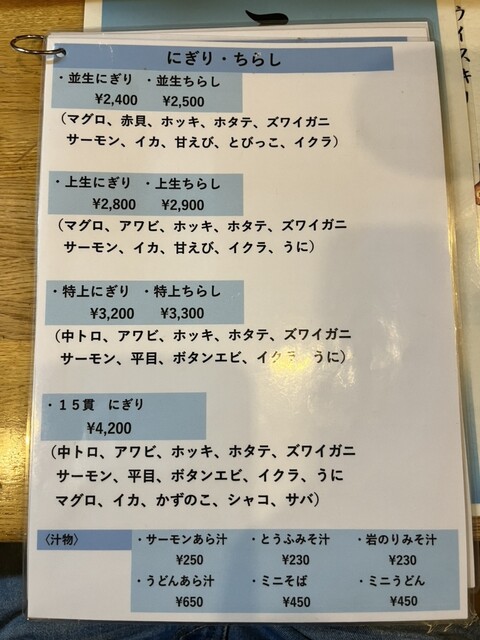 ウイスキ
にぎり・ちらし
・並生にぎり ・並生ちらし
¥2,400 ¥2,500
（マグロ、赤貝、ホッキ、ホタテ、ズワイガニ
サーモン、イカ、甘えび、とびっこ、イクラ）
・上生にぎり ・上生ちらし
¥2,800 ¥2,900
（マグロ、アワビ、ホッキ、ホタテ、ズワイガニ
サーモン、イカ、甘えび、イクラ、うに）
・特上にぎり ・特上ちらし
¥3,200 ¥3,300
（中トロ、アワビ、ホッキ、ホタテ、ズワイガニ
サーモン、平目、ボタンエビ、イクラ、うに）
・１５貫 にぎり
¥4,200
（中トロ、アワビ、ホッキ、ホタテ、ズワイガニ
サーモン、平目、ボタンエビ、イクラ、うに
マグロ、イカ、かずのこ、シャコ、サバ）
〈汁物〉 ・サーモンあら汁 ・とうふみそ汁 ・岩のりみそ汁
¥250 ¥230 ¥230
・うどんあら汁 ・ミニそば ・ミニうどん
¥650 ¥450 ¥450